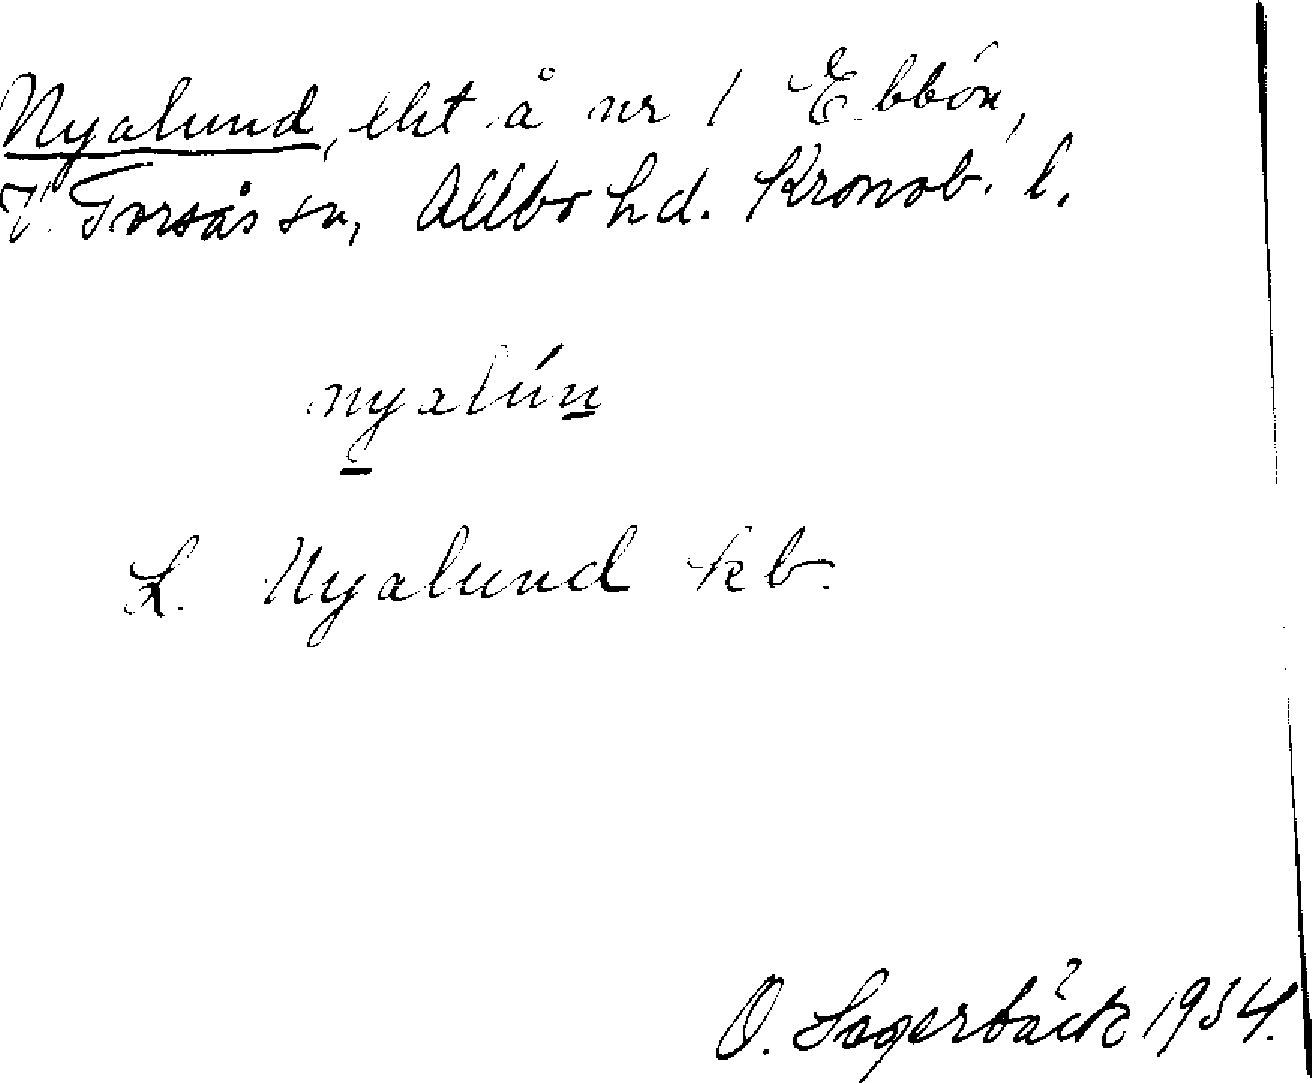 Nyalund, lht å nr 1 Ebbön,
V. Torsås sn, Allbo hd. Kronob. l.
nyalún
L. Nyalund kb.
O. Lagerbäck 1934.